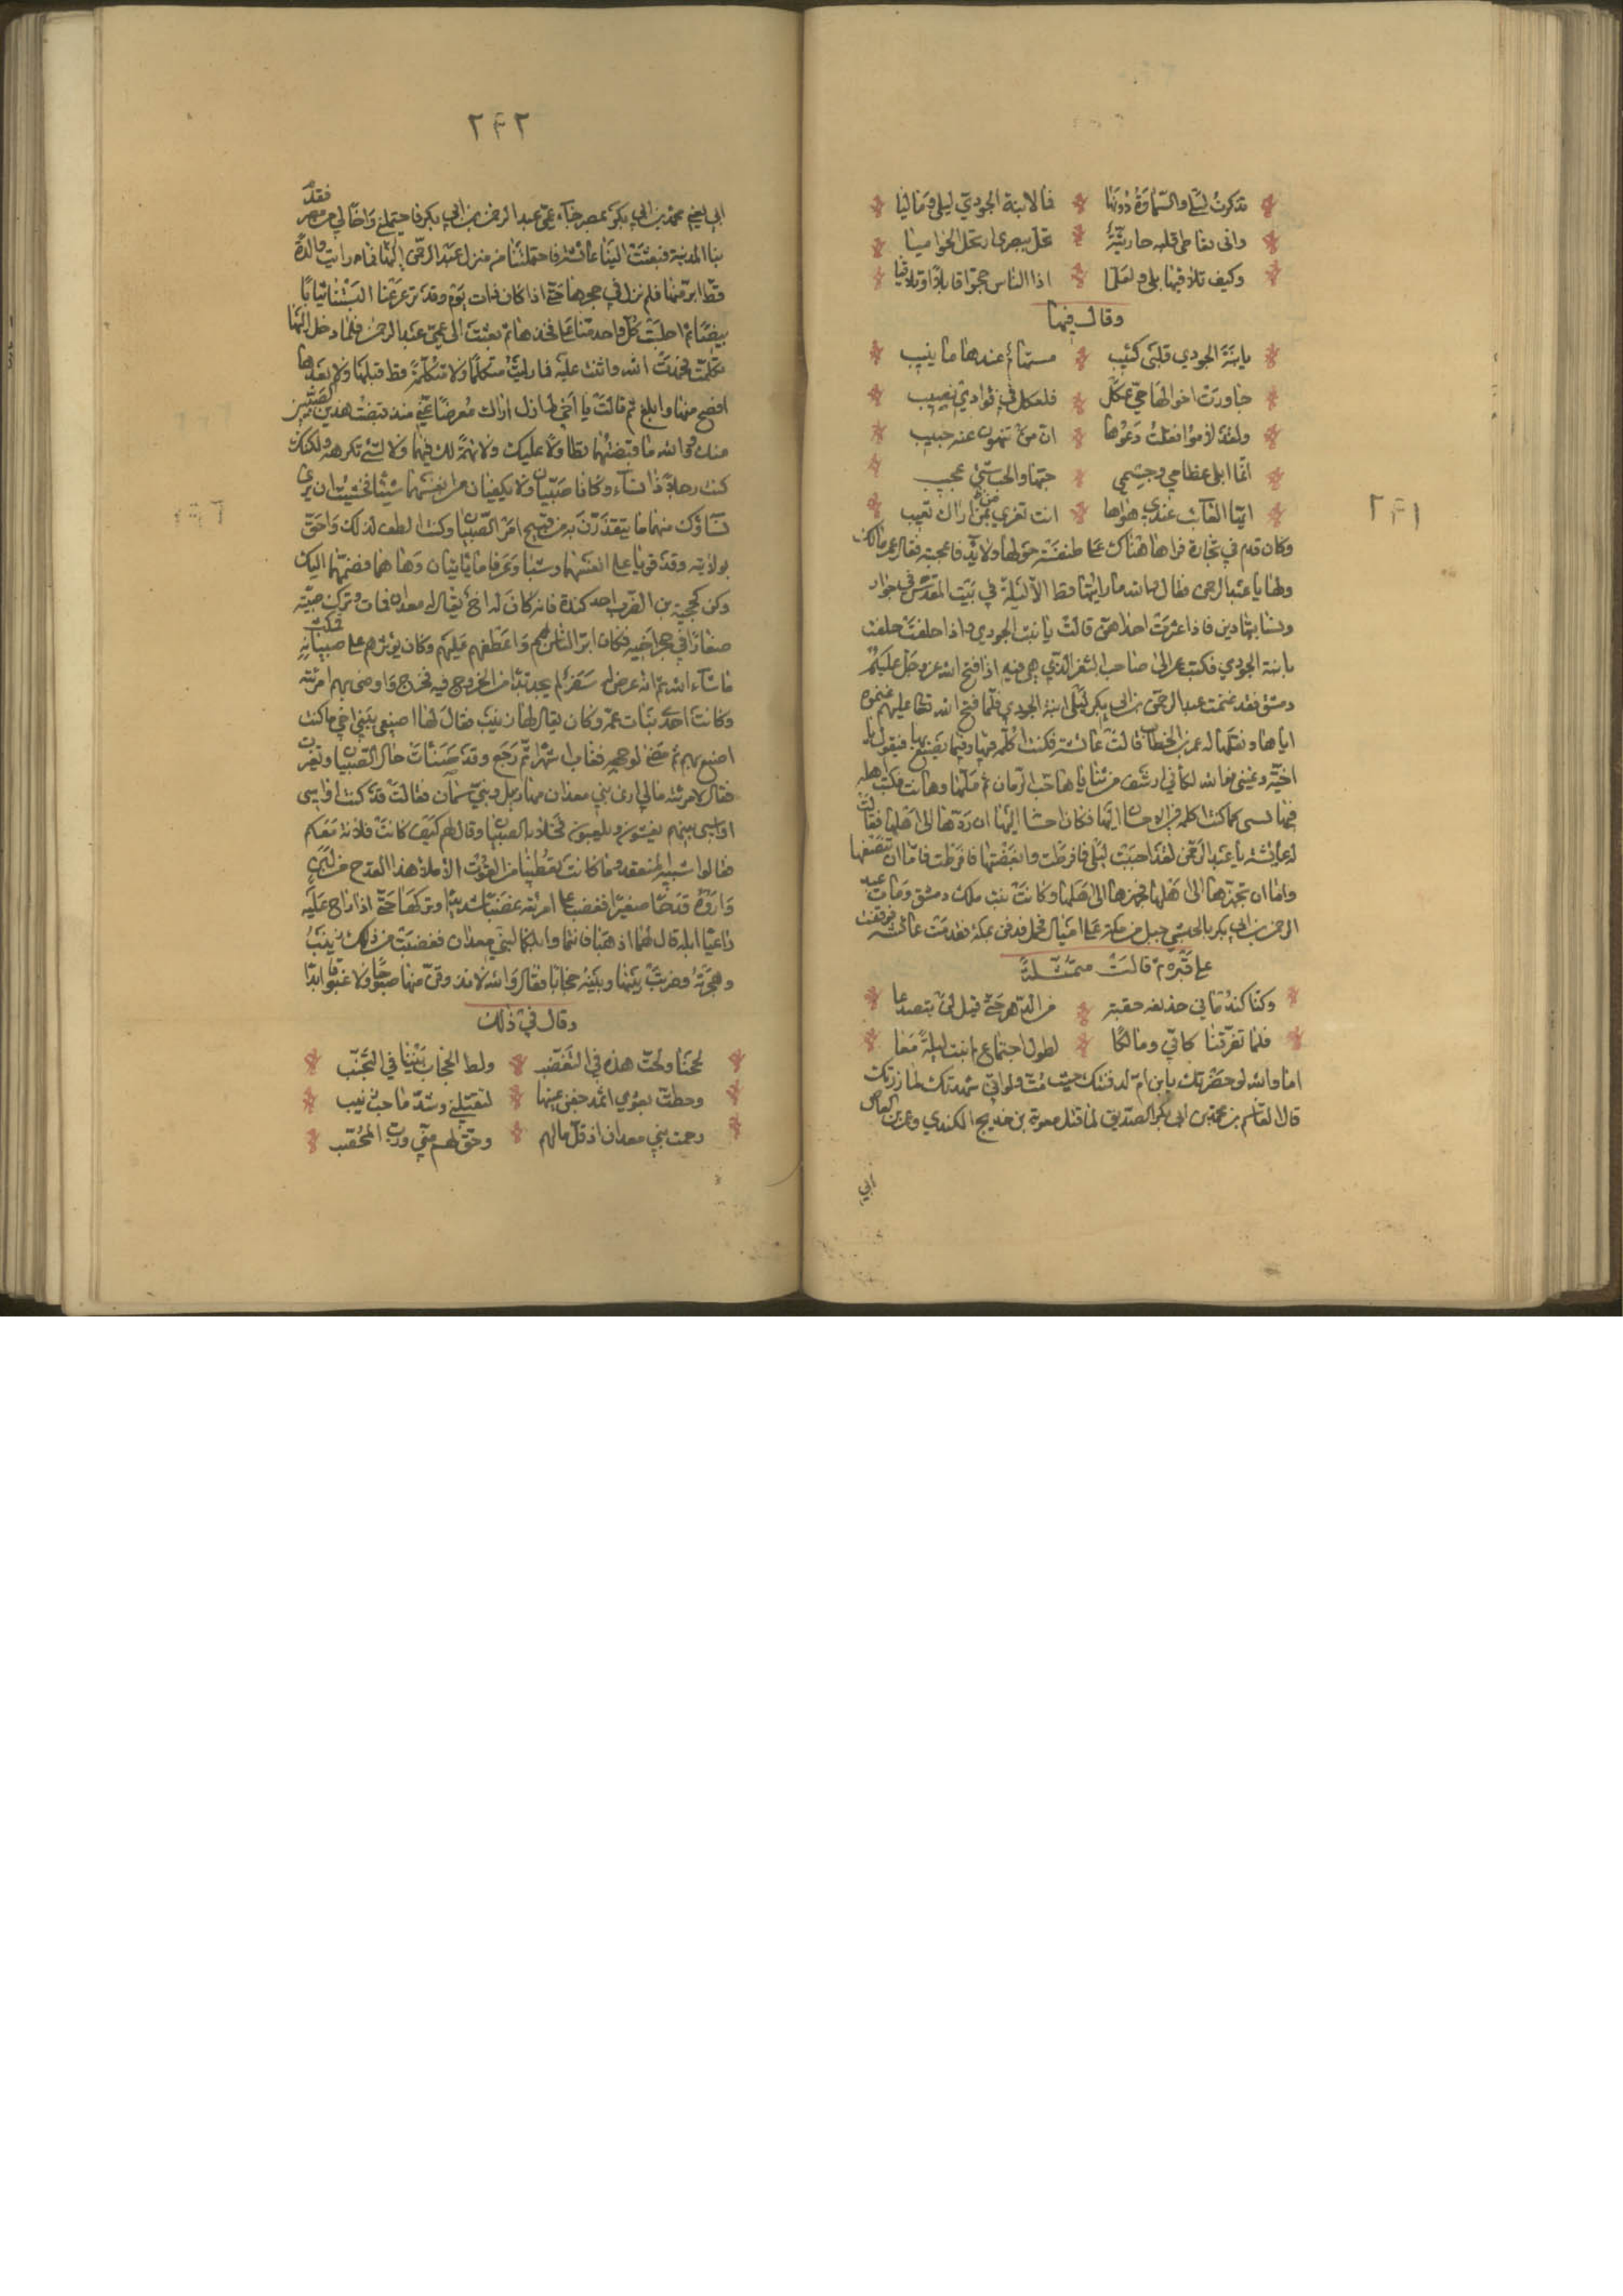 ٢۴١
تذكرت ليلى والسماوة دونها * فما لابنة الجودي ليلى وماليا
وانى تعاطى قلبه حارثية * تحل ببصرى او تحل الجوابيا
وكيف تلاقيها بلى ولعلها * اذا الناس حجوا قابلا او تلاقيا
وقال فيها
يا ابنة الجودي قلبي كئيب * مستهام عندها ما ينيب
جاورت اخوالها حي عك * فلعك في فؤادي نصيب
ولقد لاموا فقلت دعوها * ان من تنهون عنه حبيب
انما ابلى عظامي وجسمي * حبها والحب شيء عجيب
ايها العائب عندي هواها * انت تفدي من اراك تعيب
وكان قدم في تجارة فراها هناك على طنفسة حولها ولائد فاعجبته فقال عمر مالك
ولها يا عبد الرحمن فقال والله ما رايتها قط الا ليلة في بيت المقدس في جوار
ونساء يتهادين فاذا عثرت احداهن قالت يا بنت الجودي واذا حلفت حلفت
بابنة الجودي فكتب عمر الى صاحب الثغر الذي هي فيه اذا فتح الله عز وجل عليكم
دمشق فقد غنمت عبد الرحمن بن ابي بكر ليلى ابنة الجودي فلما فتح الله تعالى عليهم غنموه
اياها ونقلها له عمر بن الخطاب قالت عائشة فكنت اكلمه فيها وفيما يصنع بها فيقول يا
اخية دعيني فوالله لكأني ارشف من ثناياها حب الرمان ثم ملها وهانت
فيها كما كنت اكلمه في الاحسان اليها فكان احسانه اليها ان ردها الى اهلها فقالت
له عائشة يا عبد الرحمن لقد احببت ليلى فافرطت وابغضتها فافرطت فاما ان تنصفها
واما ان تجهزها الى اهلها فجهزها الى اهلها وكانت بنت ملك دمشق ومات عبد
الرحمن بن ابي بكر بالحبشي جبل من مكة على اميال فحمل فدفن بمكة فقدمت عائشة فوقفت
على قبره ثم قالت متمثلة
وكنا كندماني جذيمة حقبة * من الدهر حتى قيل لن يتصدعا
فلما تفرقنا كاني ومالكا * لطول اجتماع لم نبت ليلة معا
اما والله لو حضرتك يا بن ام لدفنتك حيث مت ولو اني شهدتك لما زرتك
قال القاسم بن محمد بن ابي بكر الصديق لما قتل معوية بن خديج الكندي وعمرو بن العاص
ابي
٢۴٢
ابي يعني محمد بن ابي بكر بمصر جاء عمي عبد الرحمن بن ابي بكر فاحتملني واختا لي من مصر فقدم
بنا المدينة فبعثت الينا عائشة فاحتملتنا من منزل عبد الرحمن اليها فما رايت والدة
قط ابر منها فلم نزل في حجرها حتى اذا كان ذات يوم وقد ترعرعنا البستنا ثيابا
بيضا ثم اجلست كل واحد منا على فخذها ثم بعثت الى عمي عبد الرحمن فلما دخل اليها
تكلمت فحمدت الله واثنت عليه فما رايت متكلما ولا متكلمة قط قبلها ولا بعدها
افصح منها وابلغ ثم قالت يا اخي لم ازل اراك معرضا عني منذ قبضت هذين الصبيين
منك فوالله ما قبضتهما تطاولا عليك ولا تهمة لك فيهما ولا لشيء تكرهه ولكنك
كنت رجلا ذا نساء وكانا صبيين لا يكفيان من انفسهما شيئا فخشيت ان يرى
نساؤك منهما ما يتقذرن به من قبيح امر الصبيان وكنت الطف لذلك واحق
بولايته وقد قويا على انفسهما وشبا وعرفا ما ياتيان وها هما فضمهما اليك
وكن كحجية بن المضرب احد كندة فانه كان له اخ يقال له معدان فمات وترك صبية
صغارا في حجر اخيه فكان ابر الناس بهم واعطفهم عليهم وكان يؤثرهم على صبيانه فمكث
ما شاء الله ثم انه عرض له سفر لم يجد بدا من الخروج فيه فخرج واوصى بهم امرئته
وكانت احدى بنات عمه وكان يقال لها زينب فقال لها اصنعي ببني اخي ما كنت
اصنع بهم ثم مضى لوجهه فغاب اشهرا ثم رجع وقد ساءت حال الصبيان وتغيرت
فقال لامرئته مالي ارى بني معدان مهازيل وبني سمان فقالت قد كنت اواسي
بينهم يعبثون ويلعبون فخلا بالصبيان وقال لهم كيف كانت فلانة معكم
قالوا سيئة ما كانت تعطينا من القوت الا ملاء هذا القدح من لبن
واروه قدحا صغيرا فغضب على امرئته غضبا شديدا وتركها حتى اذا راح عليه
راعيا ابله قال لهما اذهبا فانتما وابلكما لبني معدان فغضبت من ذلك زينب
وهجرته وضربت بينها وبينه حجابا فقال والله لا تذوقن منها صبوحا ولا غبوقا ابدا
وقال في ذلك
لججنا ولجت هذه في التغضب * ولط الحجاب بيننا في التجنب
وخطت بعودي اثمد جفن عينها * لتقتلني وشد ما حب زينب
رحمت بني معدان اذ قل مالهم * وحق لهم مني ورب المحصب